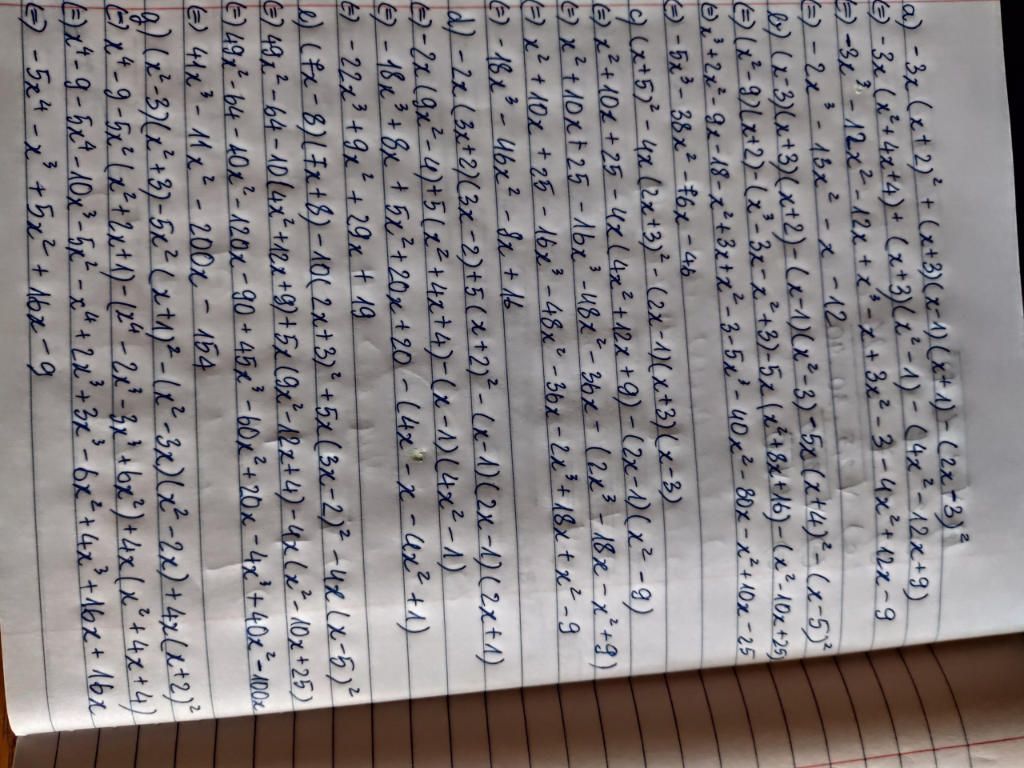 a) -3x(x+2)² + (x+3)(x-1)(x+1) - (2x-3)²
(=) -3x(x²+4x+4) + (x+3)(x²-1) - (4x²-12x+9)
(=) -3x³ - 12x² - 12x + x³ - x + 3x² - 3 - 4x² + 12x - 9
(=) -2x³ - 13x² - x - 12
b) (x-3)(x+3)(x+2) - (x-1)(x²-3) - 5x(x+4)² - (x-5)²
(=) (x²-9)(x+2) - (x³-3x-x²+3) - 5x(x²+8x+16) - (x²-10x+25)
(=) x³+2x²-9x-18-x³+3x+x²-3-5x³-40x²-80x-x²+10x-25
(=) -5x³ - 38x² - 76x - 46
c) (x+5)² - 4x(2x+3)² - (2x-1)(x+3)(x-3)
(=) x²+10x+25 - 4x(4x²+12x+9) - (2x-1)(x²-9)
(=) x²+10x+25 - 16x³ - 48x² - 36x - (2x³-18x-x²+9)
(=) x²+10x+25 - 16x³ - 48x² - 36x - 2x³ + 18x + x² - 9
(=) -18x³ - 46x² - 8x + 16
d) -2x(3x+2)(3x-2) + 5(x+2)² - (x-1)(2x-1)(2x+1)
(=) -2x(9x²-4) + 5(x²+4x+4) - (x-1)(4x²-1)
(=) -18x³ + 8x + 5x² + 20x + 20 - (4x³ - x - 4x² + 1)
(=) -22x³ + 9x² + 29x + 19
e) (7x-8)(7x+8) - 10(2x+3)² + 5x(3x-2)² - 4x(x-5)²
(=) 49x² - 64 - 10(4x²+12x+9) + 5x(9x²-12x+4) - 4x(x²-10x+25)
(=) 49x² - 64 - 40x² - 120x - 90 + 45x³ - 60x² + 20x - 4x³ + 40x² - 100x
(=) 41x³ - 11x² - 200x - 154
g) (x²-3)(x²+3) - 5x²(x+1)² - (x²-3x)(x²-2x) + 4x(x+2)²
(=) x⁴ - 9 - 5x²(x²+2x+1) - (x⁴ - 2x³ - 3x³ + 6x²) + 4x(x²+4x+4)
(=) x⁴ - 9 - 5x⁴ - 10x³ - 5x² - x⁴ + 2x³ + 3x³ - 6x² + 4x³ + 16x + 16x
(=) -5x⁴ - x³ + 5x² + 16x - 9